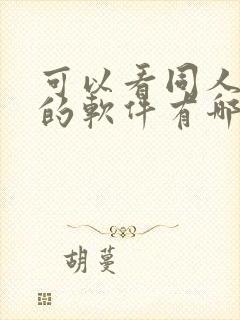 可以看同人
的軟件有哪
胡蔓